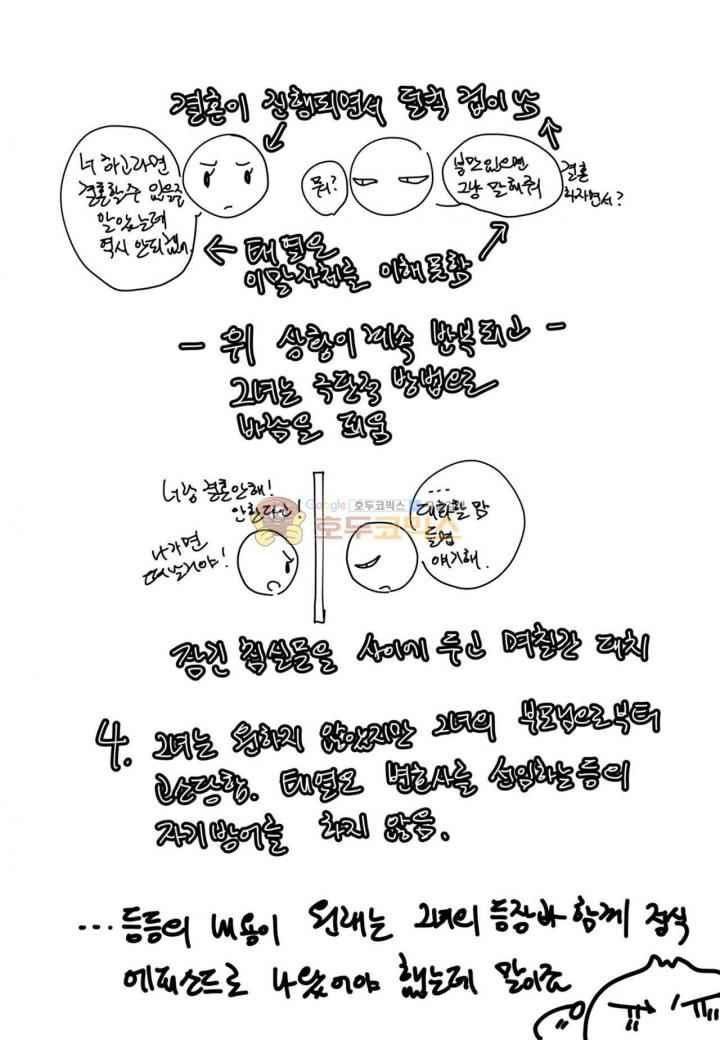 결혼이 진행되면서 덜컥 겁이 남
너 하고라면
결혼할수 있을줄
알았는데
역시 안되겠어.
뭐?
불만있으면
그냥 말해줘
결혼
하자면서?
태열은
이말자체를 이해못함
- 위 상황이 계속 반복되고 -
그녀는 극단적 방법으로
바람을 피움
너랑 결혼안해!
안한다고!
나가면
때릴거야!
....
대화할 맘
들면
얘기해.
Google 호두코믹스
호두코믹스
잠긴 침실문을 사이에 두고 며칠간 대치
4. 그녀는 원하지 않았지만 그녀의 부모님으로부터
고소당함. 태열도 변호사를 선임하는등의
자기방어를 하지 않음.
... 등등의 내용이 원래는 그녀의 등장과 함께 정식
에피소드로 나왔어야 했는데 말이죠